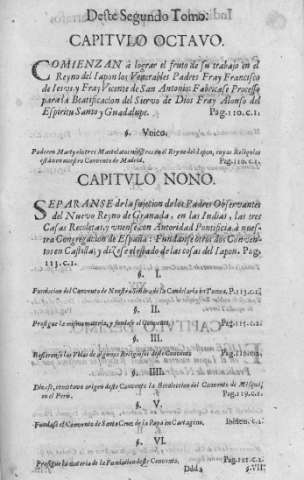 Deste Segundo Tomo.
CAPITVLO OCTAVO.
COMIENZAN à lograr el fruto de su trabajo en el
Reyno del Iapon los Venerables Padres Fray Francisco
de Iesvs, y Fray Vicente de San Antonio: Fabricase Processo
para la Beatificacion del Siervo de Dios Fray Alonso del
Espiritu Santo y Guadalupe. Pag. 110. c. 1.
§. Vnico.
Padecen Martyrio tres en el Reyno del Iapon, cuyas Reliquias
estàn en nuestro Convento de Madrid. Pag. 110. c. 1.
CAPITVLO NONO.
SEPARANSE de la sujecion de los Padres Observantes
del Nuevo Reyno de Granada, en las Indias, las tres
Casas Recoletas, y vnense con Autoridad Pontificia à nues-
tra Congregacion de España: Fundanse otros dos Conven-
tos en Castilla; y dizese el estado de las cosas del Iapon. Pag.
115. c. 1.
§. I.
Fundacion del Convento de Nuestra Señora de la Candelaria P. 115. c. 2.
§. II.
Prosigue la misma materia, y fundase el Convento. Pag. 115. c. 2.
§. III.
las Vidas de algunos Religiosos deste Convento
§. IIII.
Dizese, como tuvo origen deste Convento la Recoleccion del Convento de Misqui,
en el Perù. Pag. 119. c. 1.
§. V.
Fundase el Convento de Santa Cruz de la Popa en Cartagena. Ibidem. c. 1.
§. VI.
Prosigue la materia de la Fundacion deste Convento. Pag. 121. c. 1.
Ddd 2 §. VII.